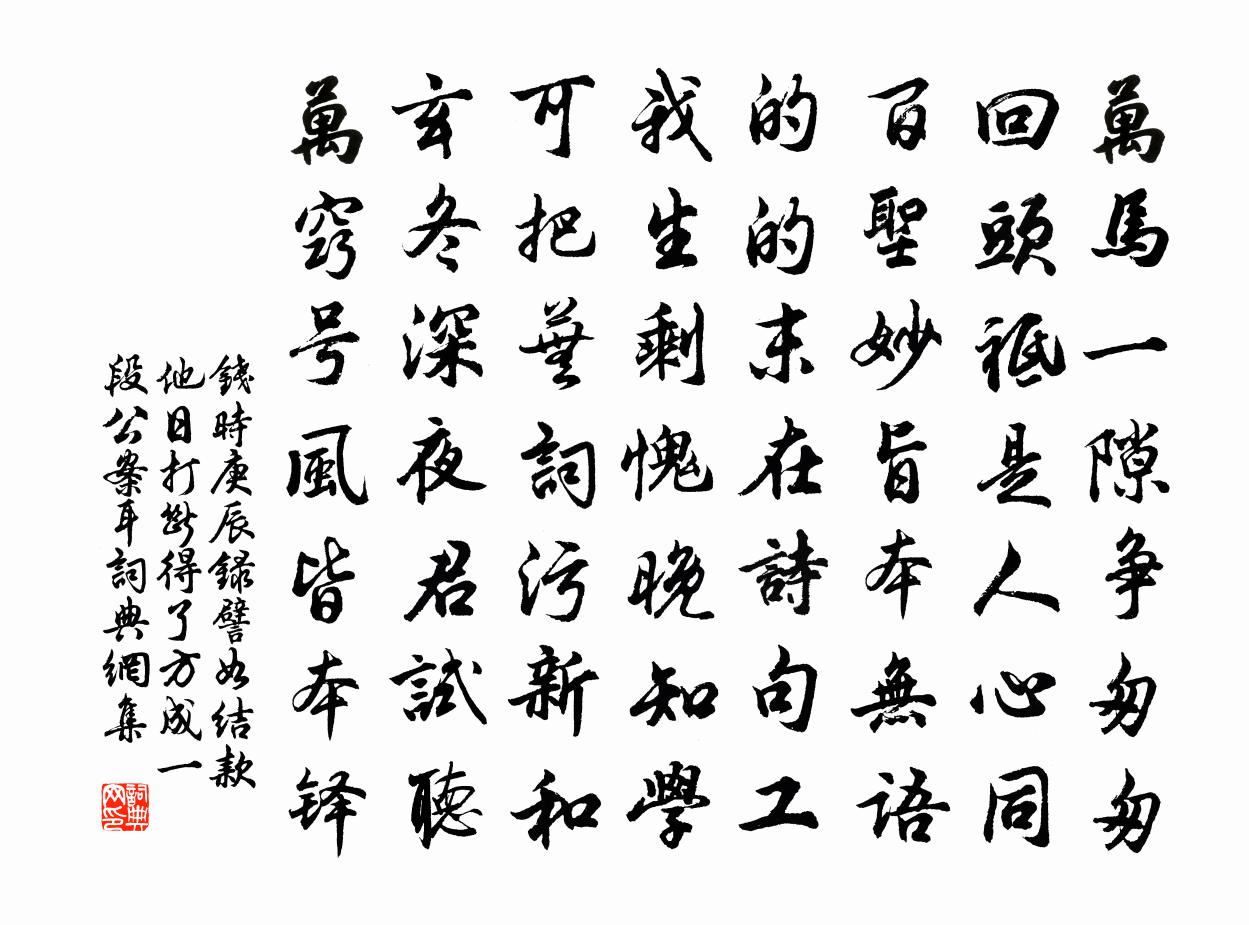 萬馬一隙爭匆匆
回頭祗是人心同
百聖妙旨本無語
的的末在詩句工
我生剩愧晚知學
可把蕪詞污新和
玄冬深夜君試聽
萬竅号風皆本铎
錢時庚辰録譬如結款
他日打斷得了方成一
段公案耳詞典網集
詞典网印